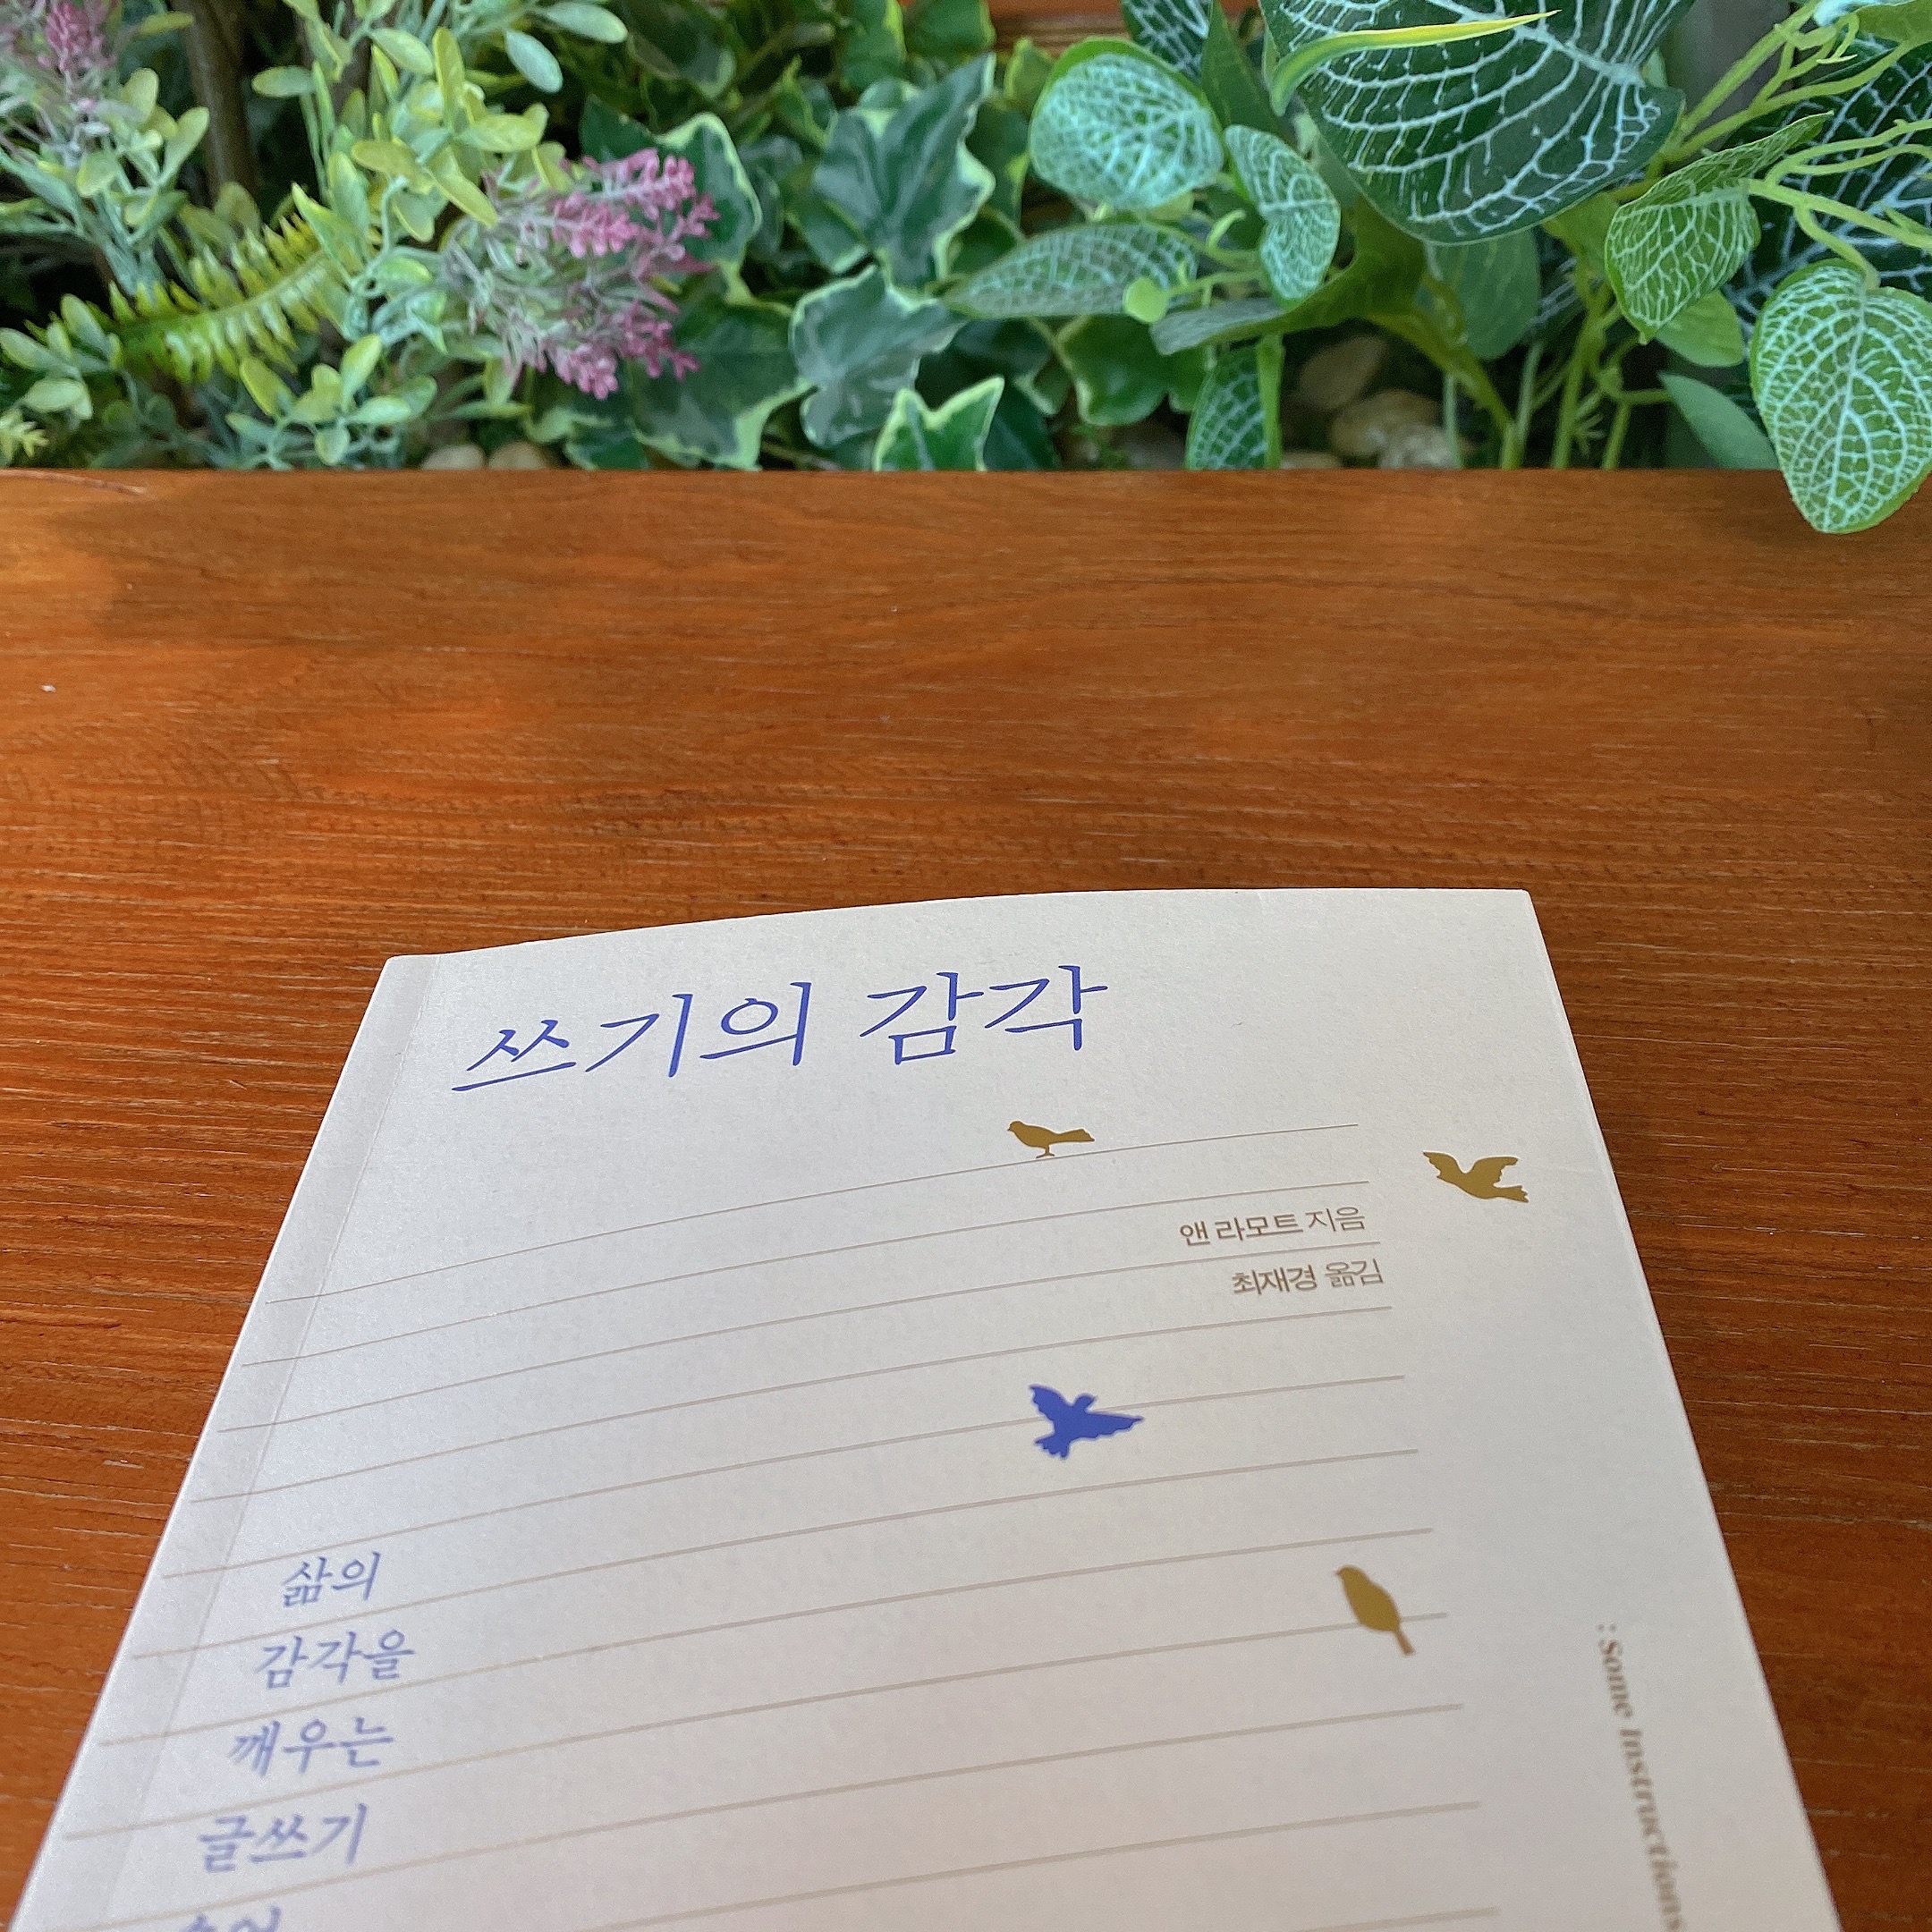 쓰기의 감각
앤 라모트 지음
최재경 옮김
삶의
감각을
깨우는
글쓰기
: Some Instructions